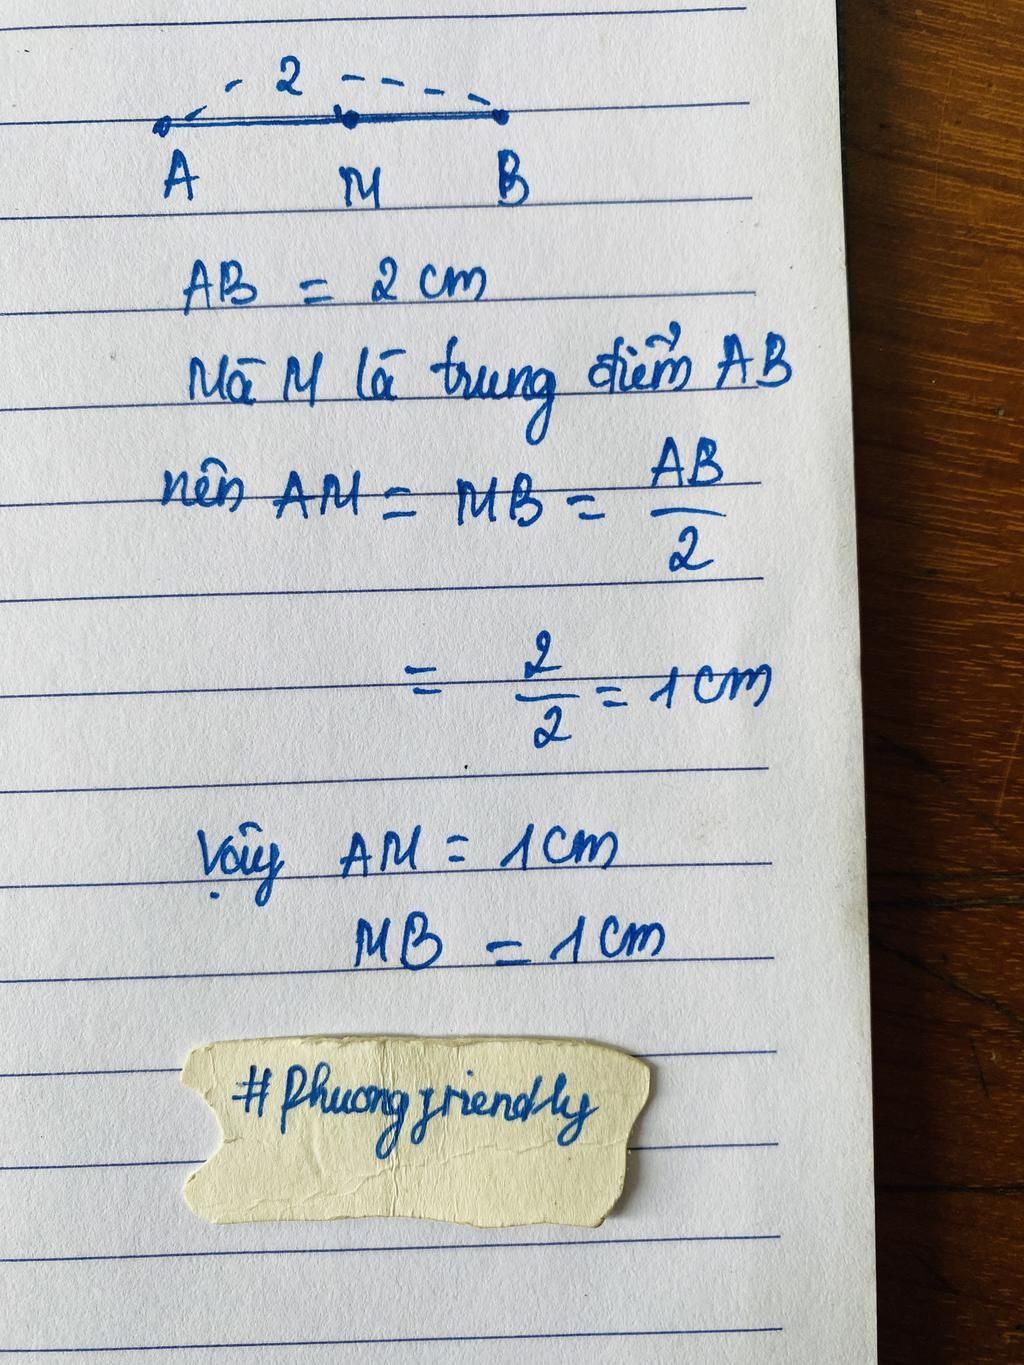 2
A M B
AB = 2 cm
Mà M là trung điểm AB
nên AM = MB = AB/2
= 2/2 = 1 cm
Vậy AM = 1 cm
MB = 1 cm
#Phuongfriendly